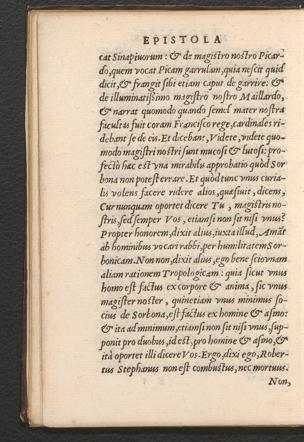 EPISTOLA
cat Sinapiuorum: & de magistro nostro Picar-
do, quem vocat Picam garrulam, quia nescit quid
dicit, & frangit sibi etiam caput de garrire: &
de illuminatissimo magistro nostro Maillardo,
& narrat quomodo quando semel mater nostra
facultas fuit coram Francisco rege, cardinales ri-
debant se de eis. Et dicebant, Videte, videte quo-
modo magistri nostri sunt mucosi & lutosi: pro-
fectò hæc est vna mirabilis approbatio quòd Sor
bona non potest errare. Et quòd tunc vnus curia-
lis volens facere ridere alios, quæsiuit, dicens,
Cur nunquam oportet dicere Tu, magistris no-
stris, sed semper Vos, etiamsi non sit nisi vnus?
Propter honorem, dixit alius, iuxta illud, Amāt
ab hominibus vocari rabbi, per humilitatem Sor-
bonicam. Non non, dixit alius, ego bene scio vnam
aliam rationem Tropologicam: quia sicut vnus
homo est factus ex corpore & anima, sic vnus
magister noster, quinetiam vnus minimus so-
cius de Sorbona, est factus ex homine & asino:
& ita ad minimum, etiamsi non sit nisi vnus, sup-
ponit pro duobus, id est, pro homine & asino, &
ità oportet illi dicere Vos. Ergo, dixi ego, Rober-
tus Stephanus non est combustus, nec mortuus.
Non,